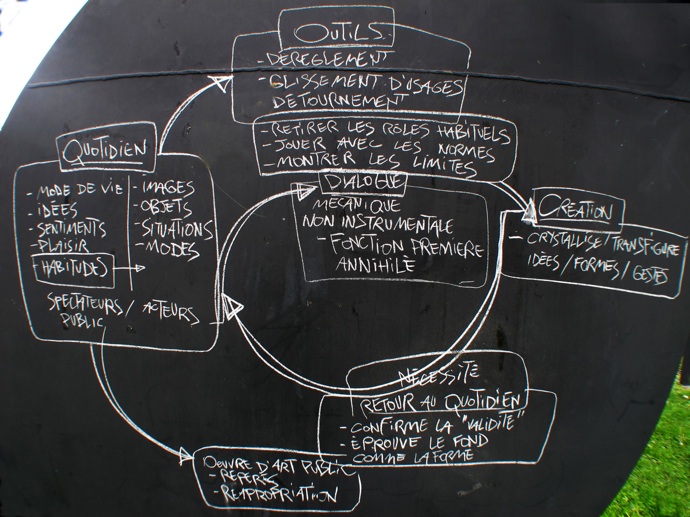 OUTILS
- DÉRÈGLEMENT
- GLISSEMENT D'USAGES
DÉTOURNEMENT
- RETIRER LES RÔLES HABITUELS
- JOUER AVEC LES NORMES
- MONTRER LES LIMITES
QUOTIDIEN
- MODE DE VIE
- IDÉES
- SENTIMENTS
- PLAISIR
- HABITUDES
- IMAGES
- OBJETS
- SITUATIONS
- MODES
SPECTATEURS / ACTEURS
PUBLIC
DIALOGUE
MÉCANIQUE
NON INSTRUMENTALE
- FONCTION PREMIÈRE
ANNIHILÉ
CRÉATION
- CRYSTALLISE / TRANSFIGURE
IDÉES / FORMES / GESTES
NÉCESSITÉ
RETOUR AU QUOTIDIEN
- CONFIRME LA "VALIDITÉ"
- ÉPROUVE LE FOND
COMME LA FORME
OEUVRE D'ART PUBLIC
- RÉFÉRÉS
- RÉAPROPRIATION